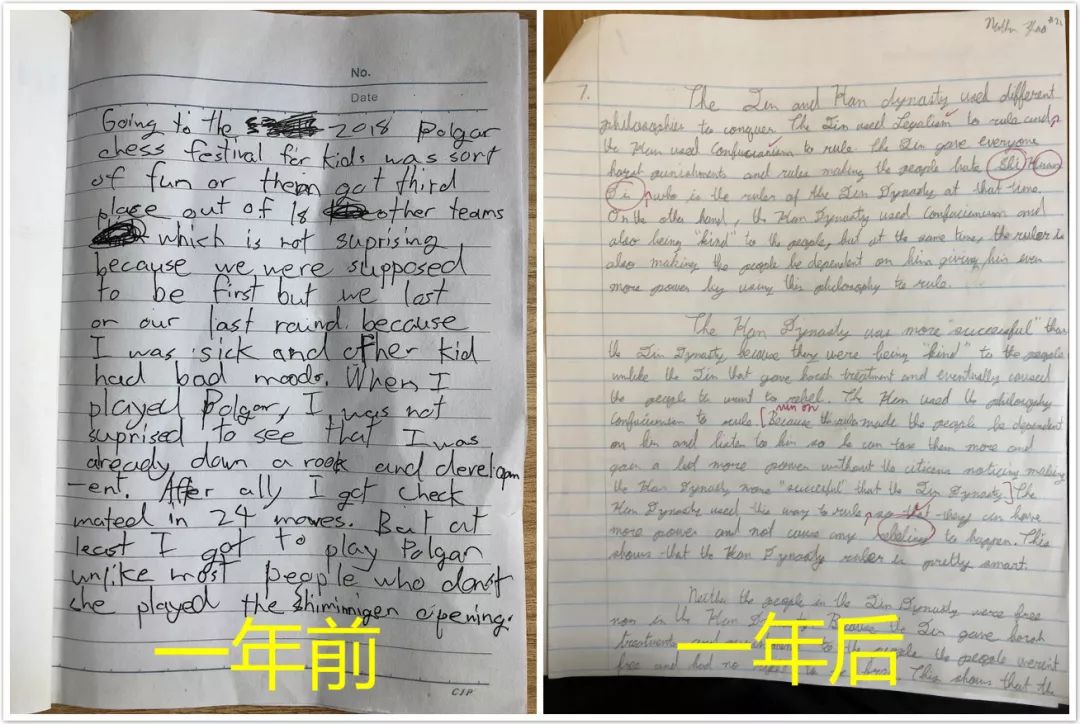 No.
Date
Going to the 2018 Polgar
chess festival for kids was sort
of fun or them got third
place out of 18 other teams
which is not suprising
because we were supposed
to be first but we last
on our last raind. because
I was sick and other kid
had bad moods. When I
played Polgar, I was not
suprised to see that I was
already down a rook and developm
-ent. After all, I got check
mated in 24 moves. But at
least I got to play Polgar
unlike most people who don't
she played the shiminigen opening.
CIP
一年前
#21
7. The Qin and Han dynasty used different
philosophies to conquer. The Qin used Legalism to rule and
the Han used Confucianism to rule. The Qin gave everyone
harsh punishments and rules making the people hate Shi Huang
Di who is the ruler of the Qin Dynasty at that time.
On the other hand, the Han Dynasty used Confucianism and
also being "kind" to the people, but at the same time, the ruler is
also making the people be dependent on him giving him even
more power by using this philosophy to rule.
The Han Dynasty was more "successful" than
the Qin Dynasty because they were being "kind" to the people
unlike the Qin that gave harsh treatment and eventually caused
the people to want to rebel. The Han used the philosophy
run on
Confucianism to rule. [Because the rule made the people be dependent
on him and listen to him so he can tax them more and
gain a lot more power without the citizens noticing making
the Han Dynasty more "succesful" that the Qin Dynasty.] The
Han Dynasty used this way to rule so that they can have
more power and not cause any rebeling to happen. This
shows that the Han Dynasty ruler is pretty smart.
Neither the people in the Qin Dynasty were free
nor in the Han Dynasty. Because the Qin gave harsh
treatments and to the people the people weren't
free and had no This shows that the
一年后